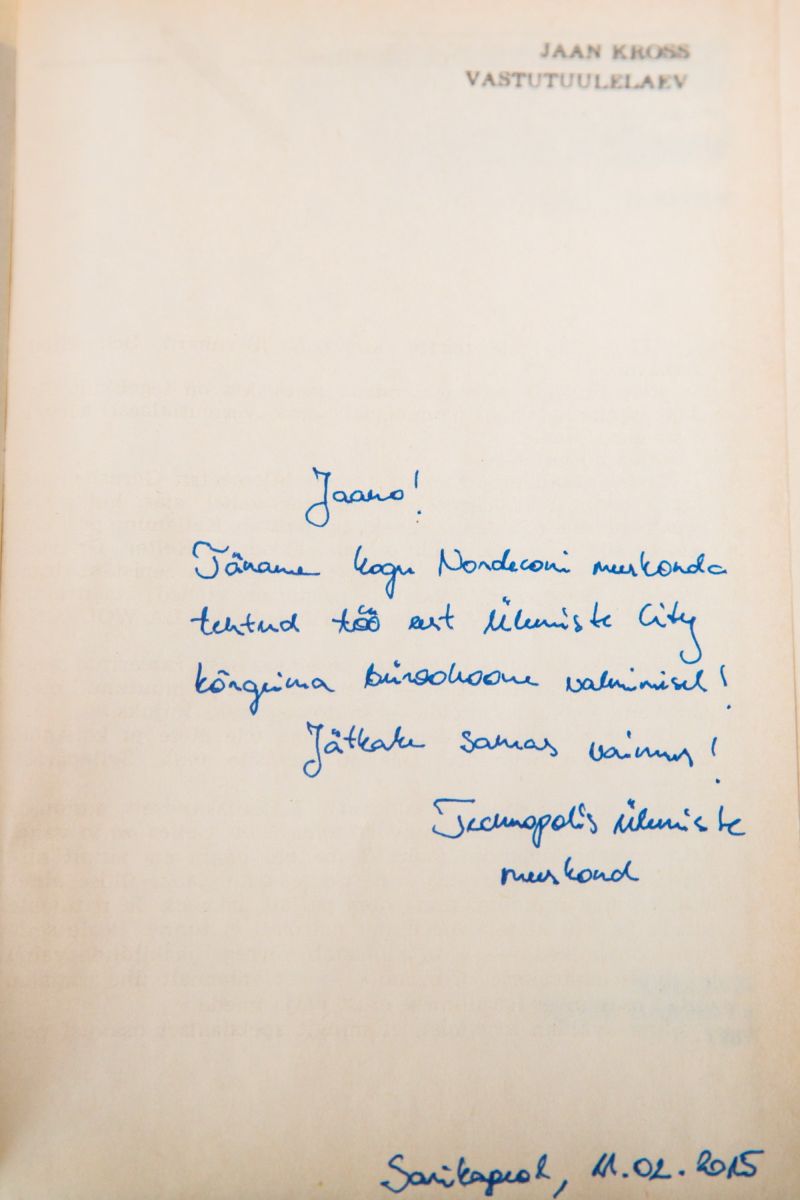 JAAN KROSS
VASTUTUULELAEV
Jaano!
Täname kogu Nordeconi meeskonda
tehtud töö eest Ülemiste City
kõrgeima büroohoone valmimisel!
Jätkake samas vaimus!
Technopolis Ülemiste
meeskond
Sarikapeol, 11.02.2015